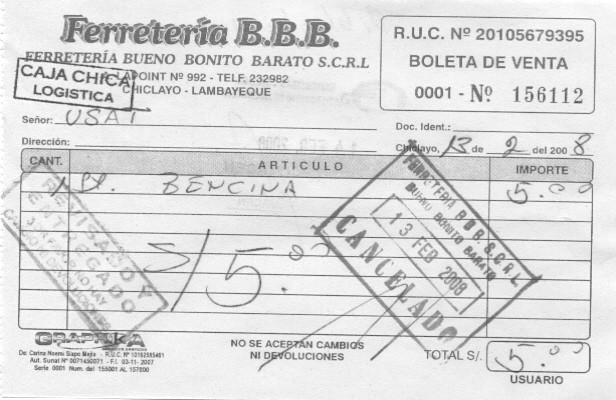 Ferretería B.B.B.
FERRETERÍA BUENO BONITO BARATO S.C.R.L
LAPOINT Nº 992 - TELF. 232982
CHICLAYO - LAMBAYEQUE
CAJA CHICA
LOGISTICA
R.U.C. Nº 20105679395
BOLETA DE VENTA
0001 - Nº 156112
Señor: USAT
Doc. Ident.:
Dirección:
Chiclayo, 13 de 2 del 2008
CANT. ARTICULO IMPORTE
BENCINA 5.00
S/5.00
REVISADO Y
ENTREGADO
CAMBIOS NI DEVOLUCIONES
FERRETERIA BBB. S.C.R.L
BUENO BONITO BARATO
13 FEB 2008
CANCELADO
GRAPHIKA
De: Carina Noemi Siapo Mejia - R.U.C. Nº
Aut. Sunat Nº 0071450071 - F.I. 02-11-2007
Serie 0001 Num. del 155001 AL 157000
NO SE ACEPTAN CAMBIOS
NI DEVOLUCIONES
TOTAL S/. 5.00
USUARIO